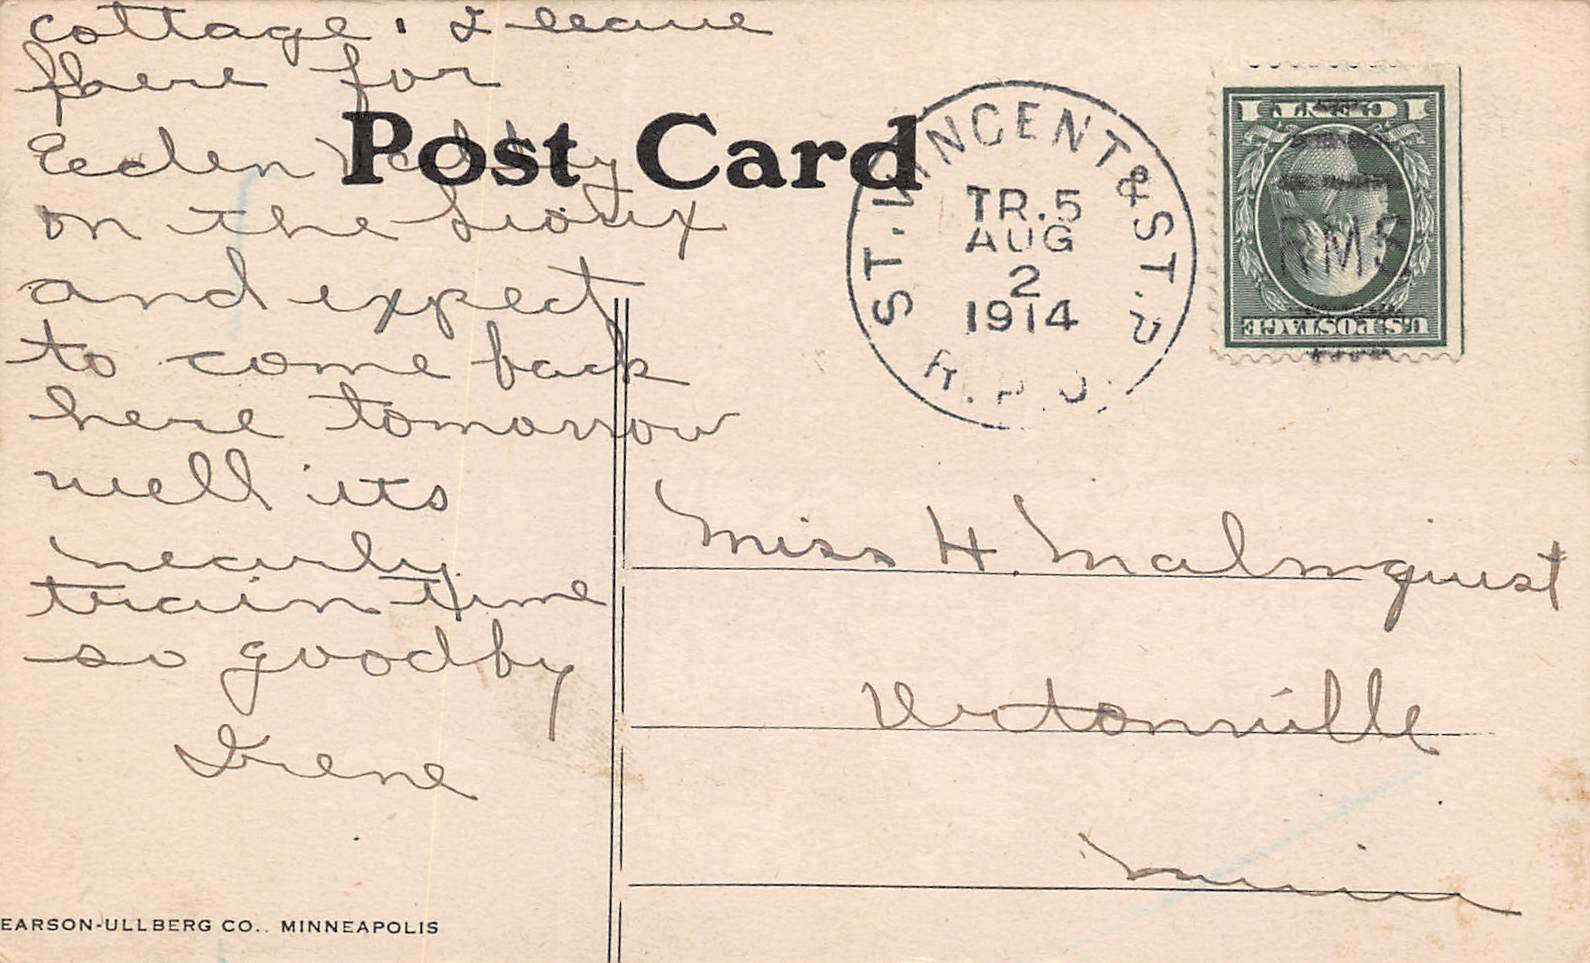 cottage. I leave
here for
Eeden Valley
on the Sioux
and expect
to come back
here tomorrow
well its
nearly
train time
so goodby
Irene
Post Card
ST. VINCENT & ST. P.
TR. 5
AUG
2
1914
R.P.O.
1 CENT 1
RMS
U.S. POSTAGE
Miss H. Malmquist
Ortonville
Minn
EARSON-ULLBERG CO., MINNEAPOLIS